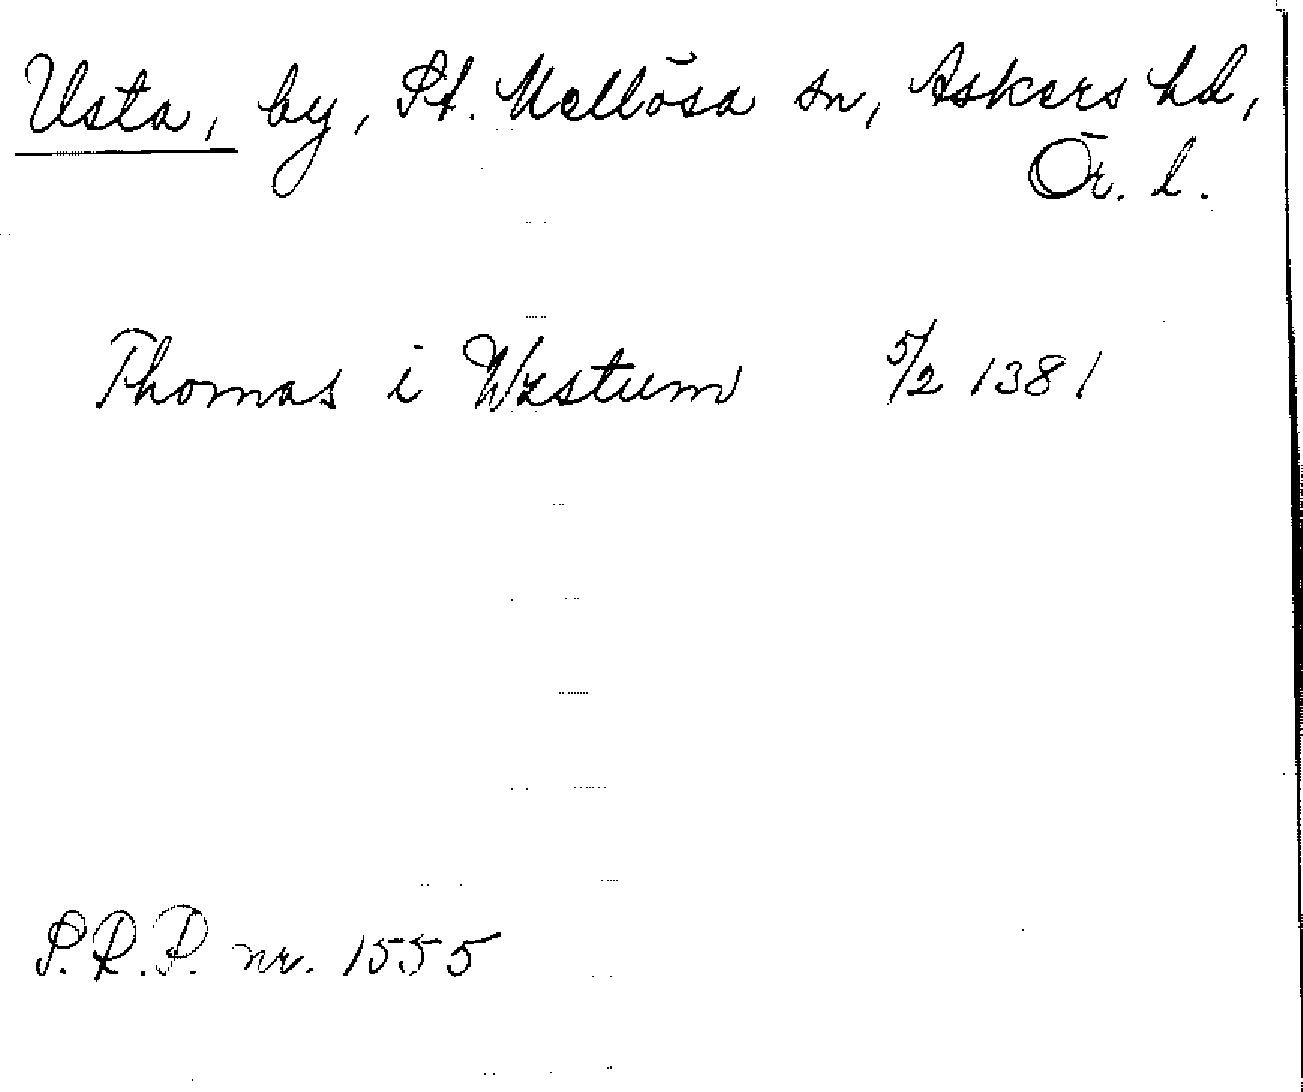 Usta, by, St. Mellösa sn, Askers hd,
Ör. l.
Thomas i Wzstum 5/2 1381
S.R.P. nr. 1555